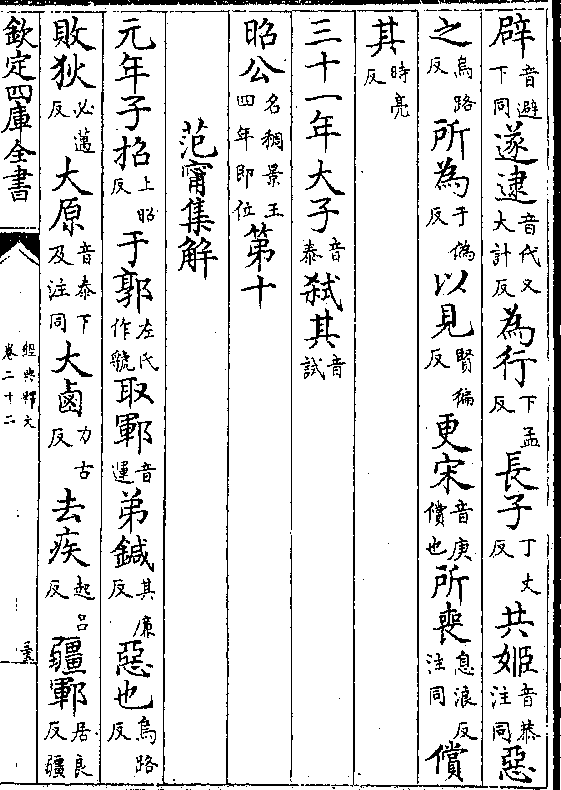 辟音避下同遂逮音代又大計反為行下孟反長子丁丈反共姬音恭注同惡
之烏路反所為于偽反以見賢徧反更宋音庚償也所喪息浪反注同償
其時亮反
三十一年大子音泰弑其音試
昭公名稠景王四年即位第十
范甯集解
元年子招上昭反于郭左氏作虢取鄆音運弟鍼其廉反惡也烏路反
敗狄必邁反大原音泰下及注同大鹵力古反去疾起呂反疆鄆居良反疆
欽定四庫全書
經典釋文
卷二十二